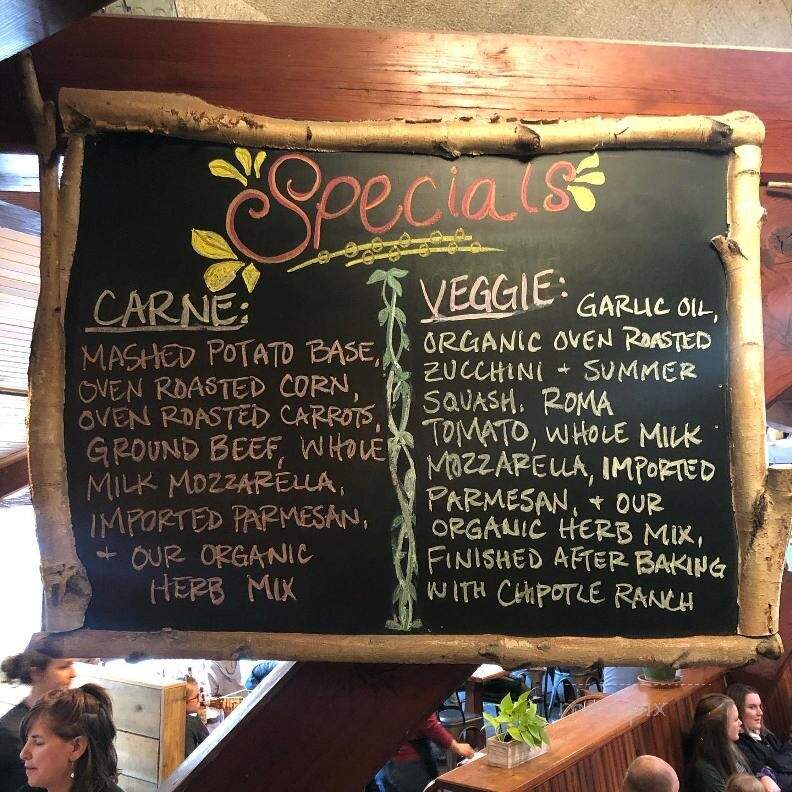 Specials
CARNE:
MASHED POTATO BASE,
OVEN ROASTED CORN,
OVEN ROASTED CARROTS,
GROUND BEEF, WHOLE
MILK MOZZARELLA,
IMPORTED PARMESAN,
+ OUR ORGANIC
HERB MIX
VEGGIE: GARLIC OIL,
ORGANIC OVEN ROASTED
ZUCCHINI + SUMMER
SQUASH. ROMA
TOMATO, WHOLE MILK
MOZZARELLA, IMPORTED
PARMESAN, + OUR
ORGANIC HERB MIX,
FINISHED AFTER BAKING
WITH CHIPOTLE RANCH